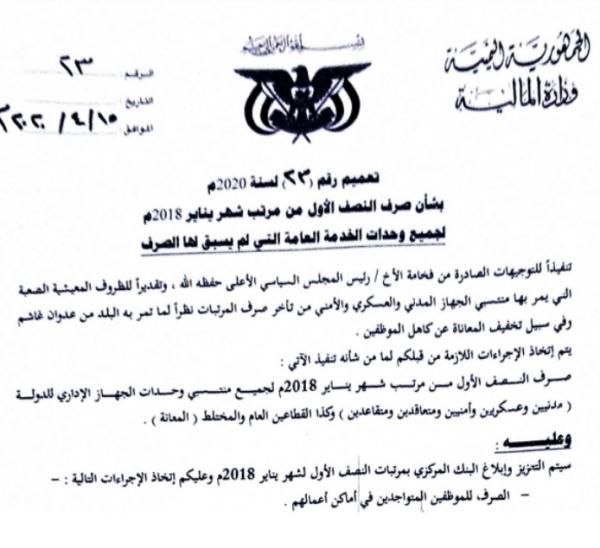 الجمهورية اليمنية
وزارة المالية
بسم الله الرحمن الرحيم
الرقم: ٢٣
التاريخ:
الموافق: ٢٠٢٠/٤/١٥م
تعميم رقم (٢٣) لسنة 2020م
بشأن صرف النصف الأول من مرتب شهر يناير 2018م
لجميع وحدات الخدمة العامة التي لم يسبق لها الصرف
تنفيذاً للتوجيهات الصادرة من فخامة الأخ / رئيس المجلس السياسي الأعلى حفظه الله ، وتقديراً للظروف المعيشية الصعبة
التي يمر بها منتسبي الجهاز المدني والعسكري والأمني من تأخر صرف المرتبات نظراً لما تمر به البلد من عدوان غاشم
وفي سبيل تخفيف المعاناة عن كاهل الموظفين .
يتم إتخاذ الإجراءات اللازمة من قبلكم لما من شأنه تنفيذ الآتي :
صرف النصف الأول من مرتب شهر يناير 2018م لجميع منتسبي وحدات الجهاز الإداري للدولة
( مدنيين وعسكريين وأمنيين ومتعاقدين ومتقاعدين ) وكذا القطاعين العام والمختلط ( المعانة ) .
وعليه :
سيتم التعزيز وإبلاغ البنك المركزي بمرتبات النصف الأول لشهر يناير 2018م وعليكم إتخاذ الإجراءات التالية : -
- الصرف للموظفين المتواجدين في أماكن أعمالهم .